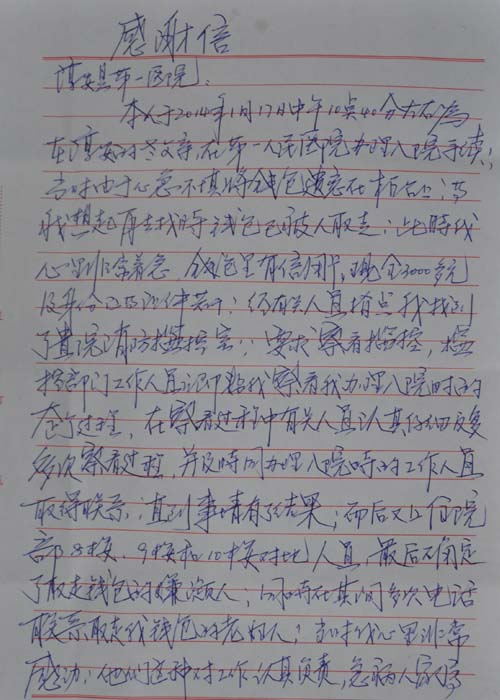 感谢信
淳安县第一医院：
本人于2014年1月17日中午10点40分左右为
在淳安的老父亲在第一人民医院办理入院手续；
当时由于心急不慎将钱包遗忘在柜台上；当
我想起再去找时钱包已被人取走；此时我
心里非常着急，钱包里有信用卡，现金3000多元
及身份证及证件若干；经有关人员指点我找到
了贵院消防监控室；要求察看监控，监
控部门工作人员立即给我察看我办理入院时的
全过程，在察看过程中有关人员认真仔细反复
多次察看过程，并及时同办理入院时的工作人员
取得联系；直到事情有了结果；而后又上住院
部8楼、9楼和10楼对比人员，最后确定
了取走钱包的嫌疑人；同时在其间多次电话
联系取走我钱包的老妇人；当时我心里非常
感动；他们这种对工作认真负责，急病人家属